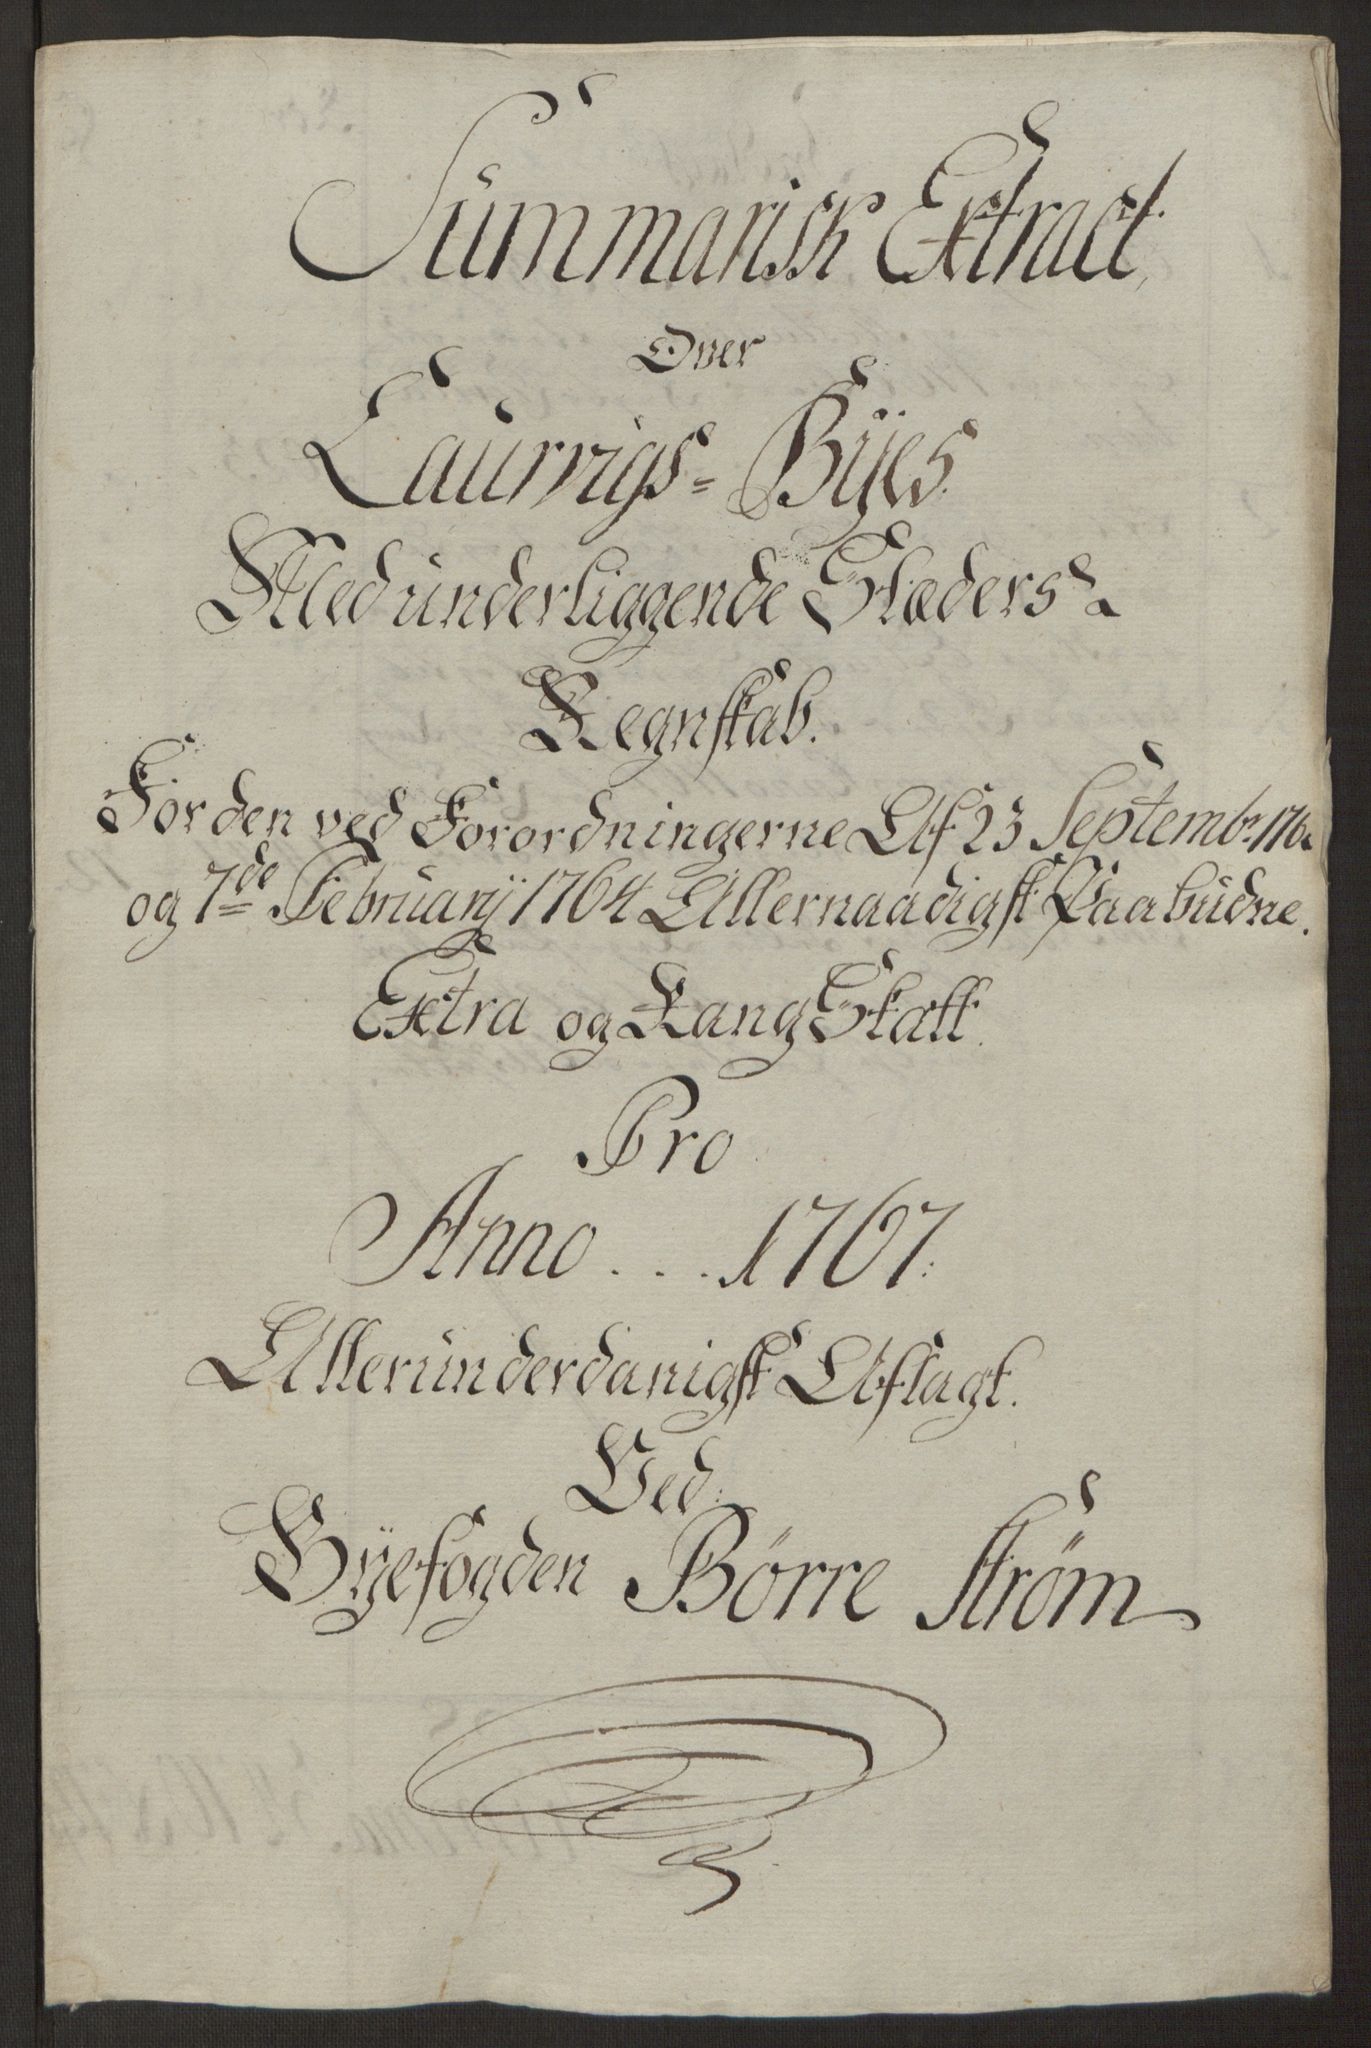 Summarisk Extract,
Over
Laurvigs = Byes
Med underliggende Stæders
Regnskab.
For den ved Forordningerne Af 23 Septembr.
og 7de February 1764 Allernaadigst Paabudne.
Extra og Rang Skatt.
Pro
Anno . . . 1767.
Allerunderdanigst Aflagt.
Ved
Byefogden Børre Strøm